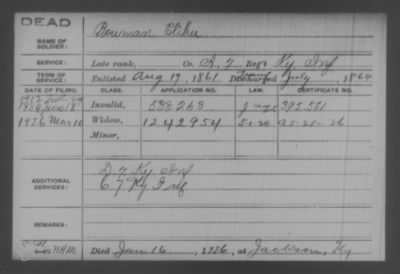 DEAD
NAME OF SOLDIER: Bowman, Elihu
SERVICE: Late rank, Co. A, 7 Reg't Ky Inf
TERM OF SERVICE: Enlisted Aug 17, 1861 Discharged July, 1864
DATE OF FILING. CLASS. APPLICATION NO. LAW. CERTIFICATE NO.
Invalid, 538263
1926 Mar 10 Widow, 1242954
Minor,
ADDITIONAL SERVICES: D. 7 Ky Inf
C 7 Ky Inf
REMARKS:
Died Jan 16, 1926, at Jackson, Ky